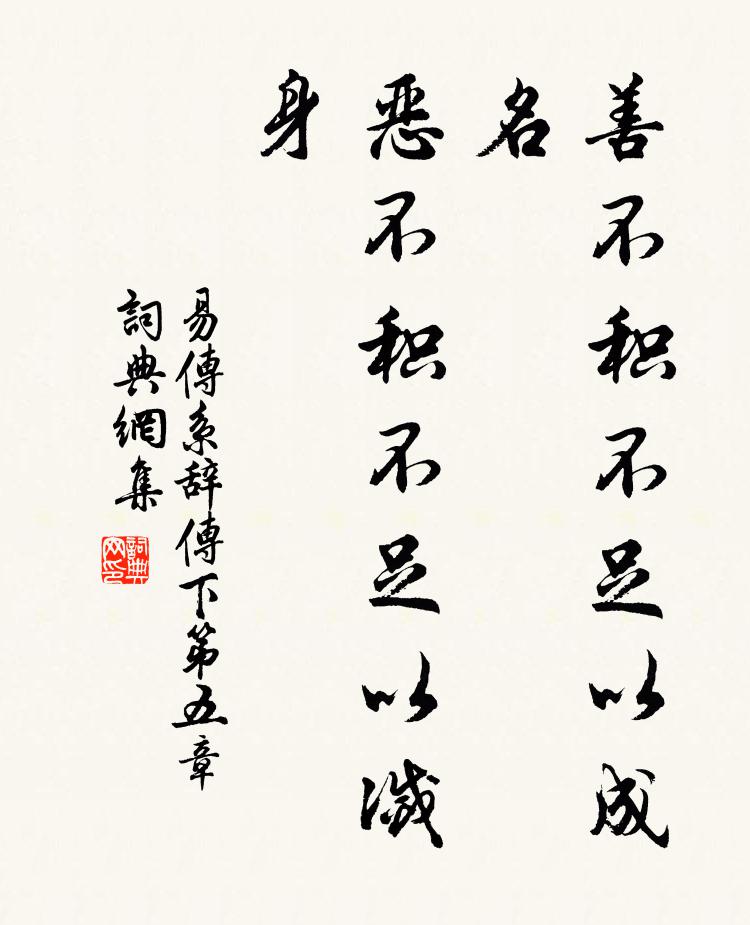 善不积不足以成
名
惡不积不足以滅
身
易傳系辞傳下第五章
詞典網集
詞典
网印